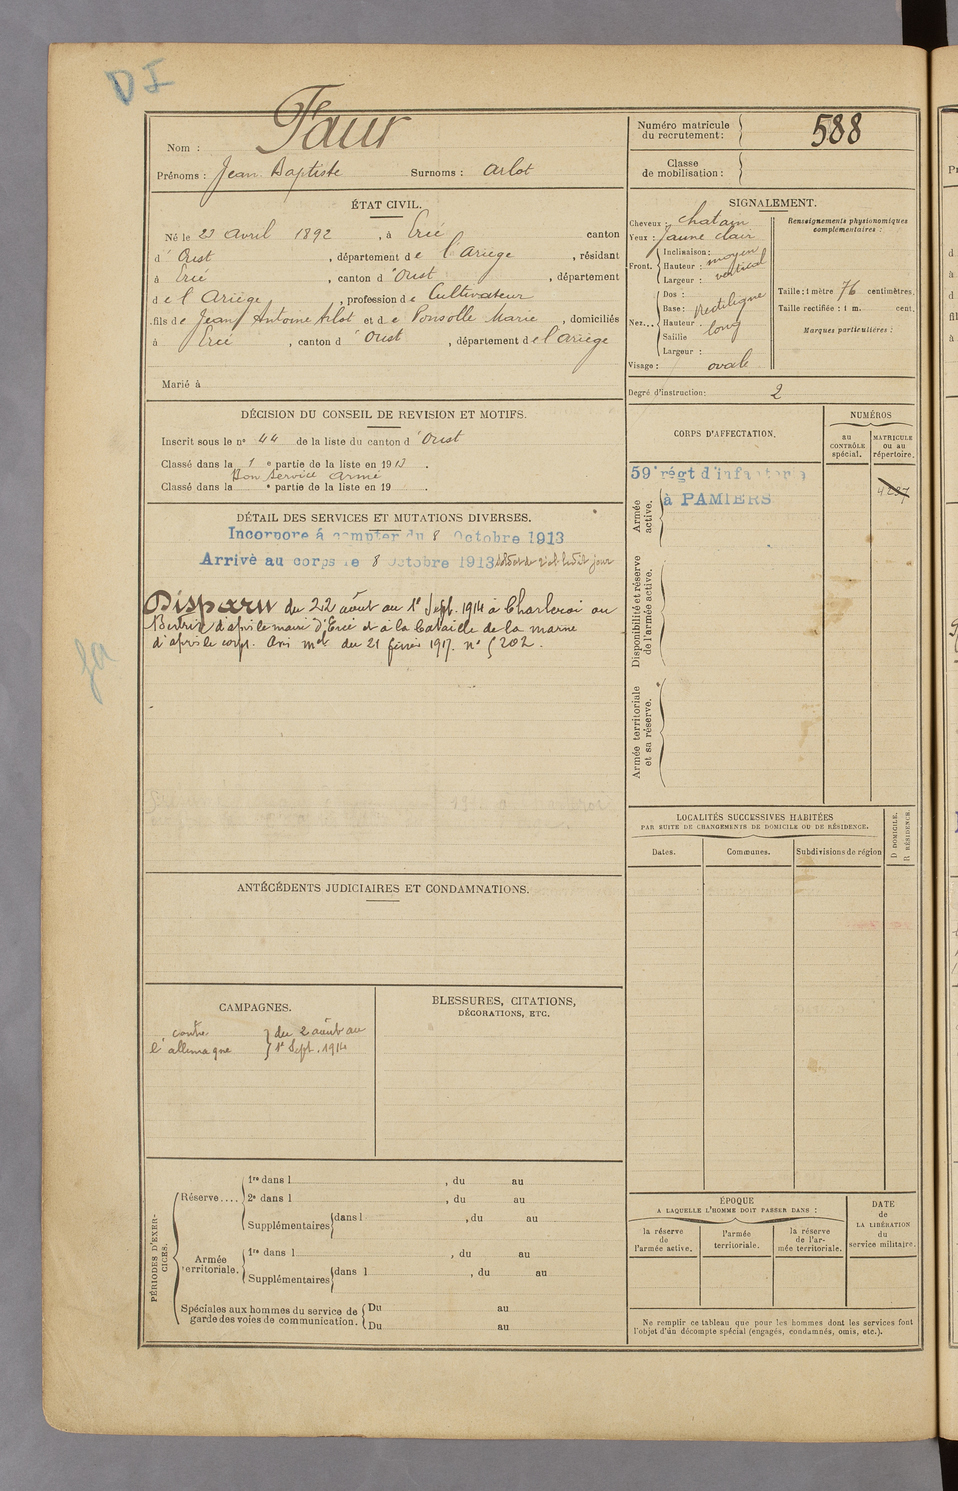 DI
Nom : Faur
Prénoms : Jean Baptiste Surnoms : Arlot
Numéro matricule du recrutement : 588
Classe de mobilisation :
ÉTAT CIVIL.
Né le 23 Avril 1892, à Ercé canton
d' Oust, département de l'Ariège, résidant
à Ercé, canton d'Oust, département
de l'Ariège, profession de Cultivateur
fils de Jean Antoine Arlot et de Ponsolle Marie, domiciliés
à Ercé, canton d'Oust, département de l'Ariège
Marié à
SIGNALEMENT.
Cheveux : chatain
Yeux : jaune clair
Front. Inclinaison : moyen
Hauteur : vertical
Largeur :
Nez... Dos : Rectiligne
Base :
Hauteur : long
Saillie
Largeur :
Visage : ovale
Renseignements physionomiques complémentaires :
Taille : 1 mètre 76 centimètres.
Taille rectifiée : 1 m. cent.
Marques particulières :
Degré d'instruction : 2
DÉCISION DU CONSEIL DE REVISION ET MOTIFS.
Inscrit sous le n° 44 de la liste du canton d'Oust
Classé dans la 1e partie de la liste en 1913.
Bon Service Armé
Classé dans la e partie de la liste en 19 .
CORPS D'AFFECTATION.
NUMÉROS
au CONTRÔLE spécial.
MATRICULE ou au répertoire.
59e régt d'infanterie
à PAMIERS
Armée active.
Disponibilité et réserve de l'armée active.
Armée territoriale et sa réserve.
DÉTAIL DES SERVICES ET MUTATIONS DIVERSES.
Incorporé à compter du 8 Octobre 1913
Arrivé au corps le 8 Octobre 1913 soldat de 2e cl. ledit jour
Disparu du 22 août au 1er Sept. 1914 à Charleroi ou
Bertrix d'après le maire d'Ercé et à la bataille de la marne
d'après le corps. Avis mel du 21 février 1917. n°
LOCALITÉS SUCCESSIVES HABITÉES
PAR SUITE DE CHANGEMENTS DE DOMICILE OU DE RÉSIDENCE.
Dates.
Communes.
Subdivisions de région
D DOMICILE.
R RÉSIDENCE.
ANTÉCÉDENTS JUDICIAIRES ET CONDAMNATIONS.
CAMPAGNES.
contre l'allemagne } du 2 août au
1er Sept. 1914
BLESSURES, CITATIONS,
DÉCORATIONS, ETC.
PÉRIODES D'EXERCICES.
Réserve.... 1re dans l , du au
2e dans l , du au
Supplémentaires dans l , du au
Armée territoriale. 1re dans l , du au
Supplémentaires dans l , du au
Spéciales aux hommes du service de garde des voies de communication. Du au
Du au
ÉPOQUE
A LAQUELLE L'HOMME DOIT PASSER DANS :
la réserve de l'armée active.
l'armée territoriale.
la réserve de l'armée territoriale.
DATE de LA LIBÉRATION du service militaire.
Ne remplir ce tableau que pour les hommes dont les services font
l'objet d'un décompte spécial (engagés, condamnés, omis, etc.).